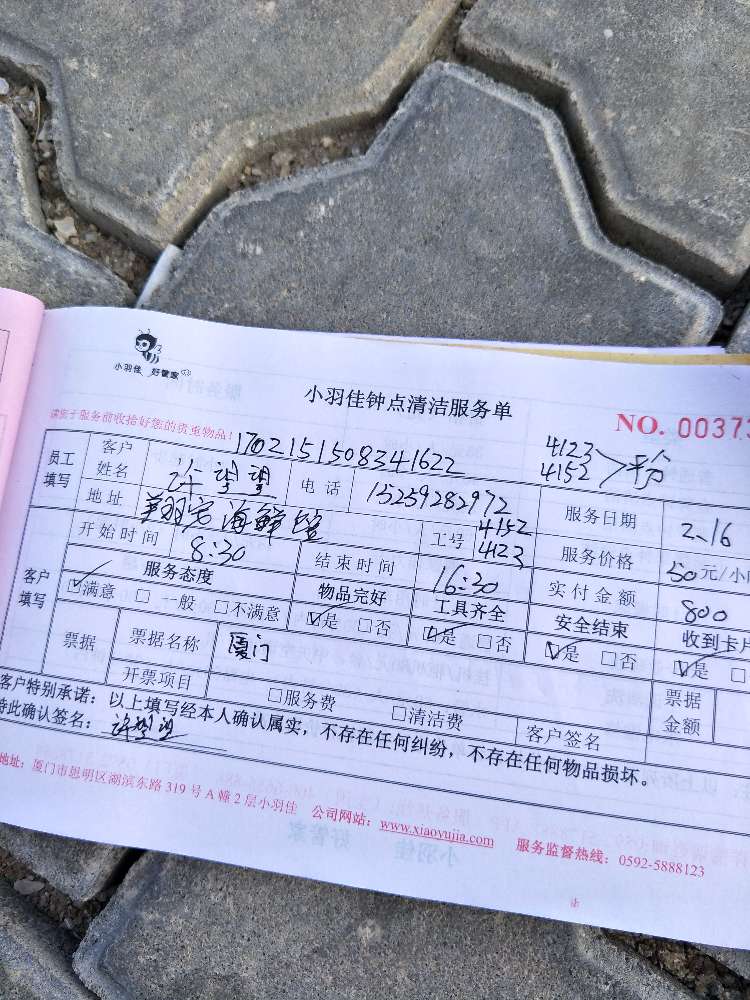 小羽佳 好管家
小羽佳钟点清洁服务单
请您于服务前收拾好您的贵重物品！
NO. 00373
1702151508341622
4123
4152
员工填写 客户姓名 许望望 电话 15259282972 服务日期 2.16
地址 海鲜 工号 4152 4123 服务价格 50元/小
客户填写 开始时间 8:30 结束时间 16:30 实付金额 800
服务态度 物品完好 工具齐全 安全结束 收到卡片
☑满意 □一般 □不满意 ☑是 □否 ☑是 □否 ☑是 □否 ☑是 □
票据 票据名称 厦门 票据金额
开票项目 □服务费 □清洁费 客户签名
客户特别承诺：以上填写经本人确认属实，不存在任何纠纷，不存在任何物品损坏。
特此确认签名：许望望
地址：厦门市思明区湖滨东路 319 号 A 幢 2 层小羽佳 公司网站：www.xiaoyujia.com 服务监督热线：0592-5888123